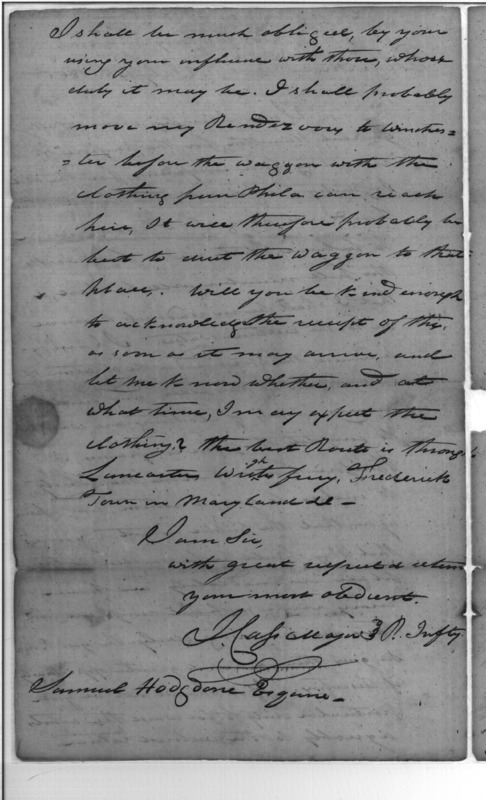 I shall be much obliged, by your
using your influence with those, whose
duty it may be. I shall probably
move my Rendezvous to Winches=
=ter before the waggon with the
clothing from Phila can reach
here, It will therefore probably be
best to direct the waggon to that
place. Will you be kind enough
to acknowledge the receipt of this,
as soon as it may arrive, and
let me know whether, and at
what time, I may expect the
clothing? the best Route is through
Lancaster, ferry, Frederick
Town in Maryland &c -
I am Sir,
with great respect & esteem
your most obedient.
J Cass Major 3 R. Infty
Samuel Hodgdone Esquire -